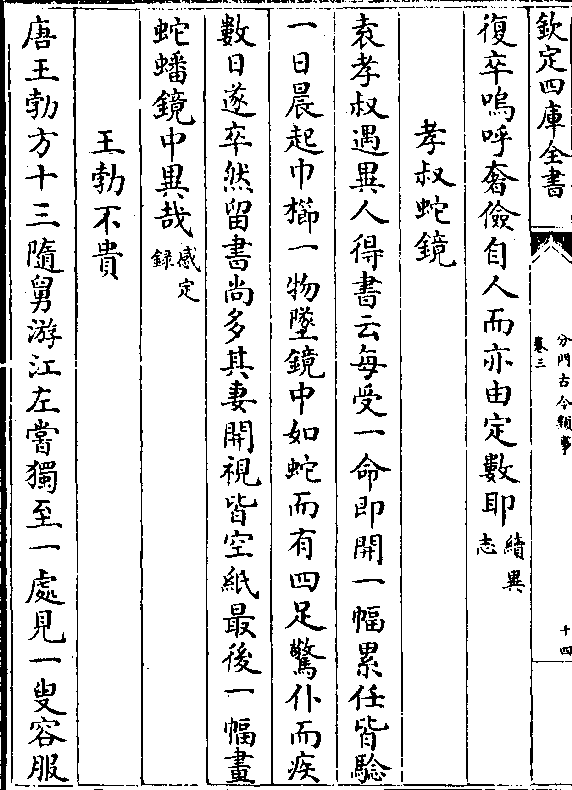 欽定四庫全書
分門古今類事
卷三
十四
復卒嗚呼奢儉自人而亦由定數耶續異志
孝叔蛇鏡
袁孝叔遇異人得書云每受一命即開一幅累任皆驗
一日晨起巾櫛一物墜鏡中如蛇而有四足驚仆而疾
數日遂卒然留書尚多其妻開視皆空紙最後一幅畫
蛇蟠鏡中異哉感定録
王勃不貴
唐王勃方十三隨舅游江左嘗獨至一處見一叟容服